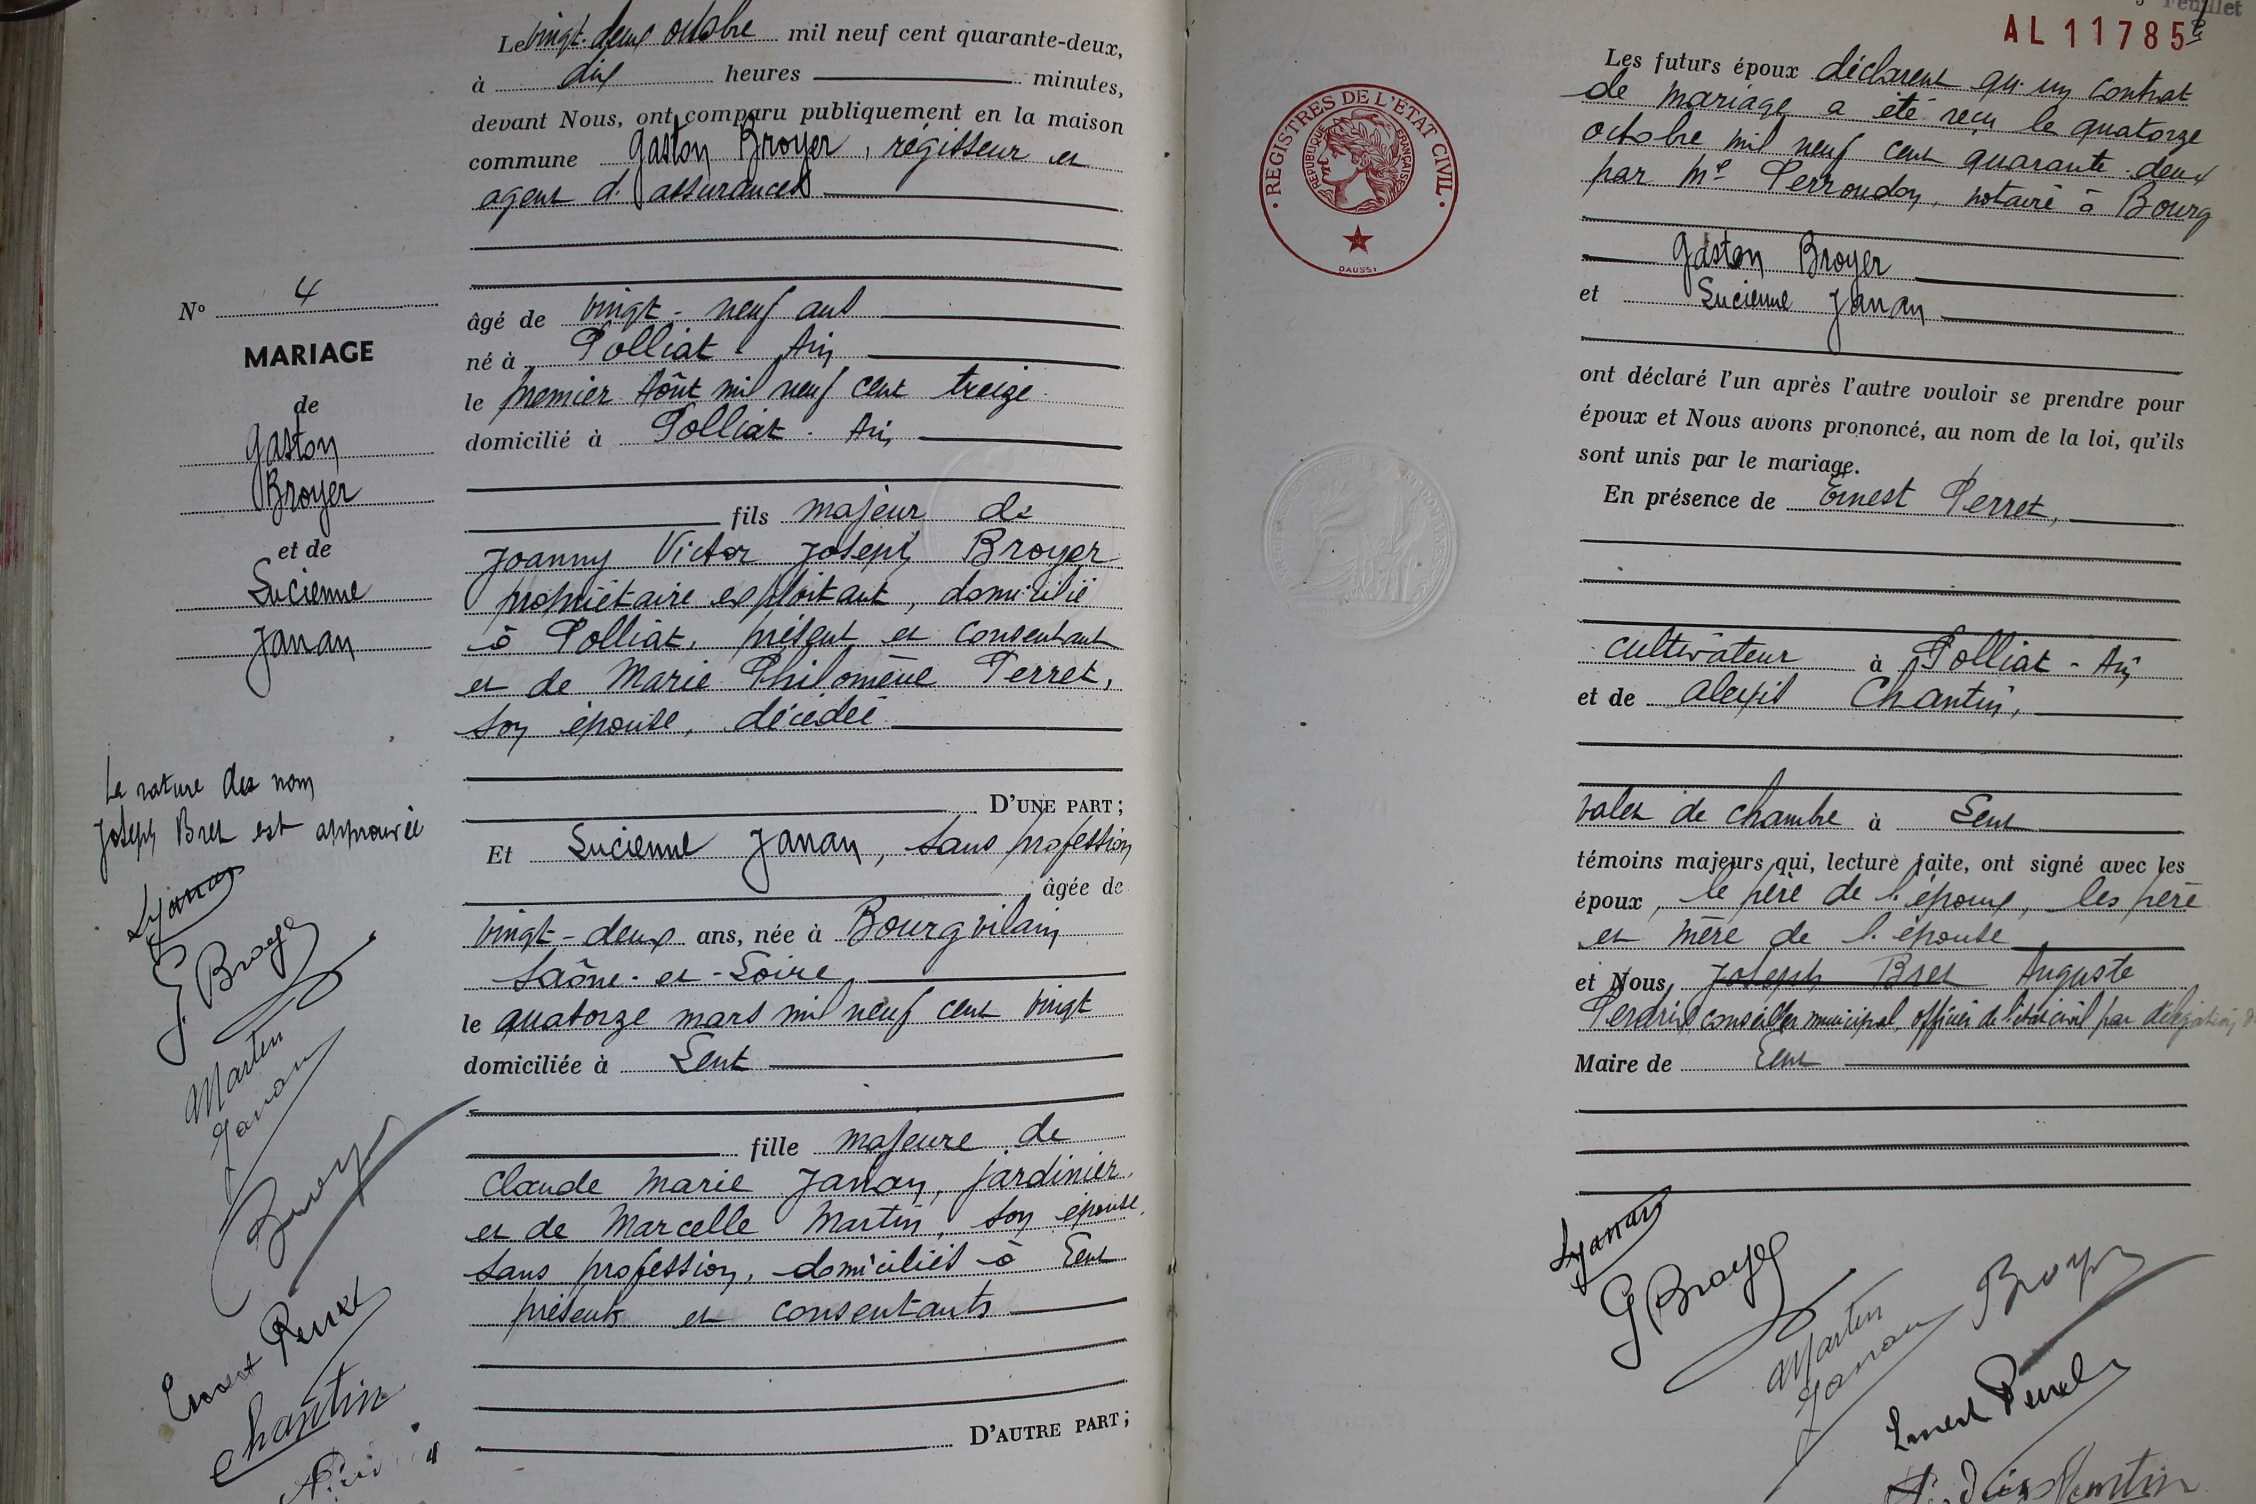 Le vingt-deux octobre mil neuf cent quarante-deux,
à dix heures minutes,
devant Nous, ont comparu publiquement en la maison
commune Gaston Broyer, régisseur et
agent d'assurances
N° 4
MARIAGE
de
Gaston
Broyer
et de
Lucienne
Janan
âgé de vingt-neuf ans
né à Polliat - Ain
le premier Août mil neuf cent treize
domicilié à Polliat - Ain
fils majeur de
Joanny Victor Joseph Broyer
propriétaire exploitant, domicilié
à Polliat, présent et consentant
et de Marie Philomène Perret,
son épouse, décédée
D'UNE PART;
Et Lucienne Janan, sans profession
âgée de
vingt-deux ans, née à Bourgvilain
Saône-et-Loire
le quatorze mars mil neuf cent vingt
domiciliée à Lent
fille majeure de
Claude Marie Janan, jardinier
et de Marcelle Martin, son épouse,
sans profession, domiciliés à Lent
présents et consentants
D'AUTRE PART;
La rature des nom
Joseph Bret est approuvée
LJanan
G. Broyer
Martin
Janan
Broyer
Ernest Perret
Chantin
Feuillet
AL 11785
REGISTRES DE L'ETAT CIVIL
REPUBLIQUE FRANÇAISE
DAUSSY
Les futurs époux déclarent qu'un contrat
de mariage a été reçu le quatorze
octobre mil neuf cent quarante-deux
par Me Perroudon, notaire à Bourg
Gaston Broyer
et Lucienne Janan
ont déclaré l'un après l'autre vouloir se prendre pour
époux et Nous avons prononcé, au nom de la loi, qu'ils
sont unis par le mariage.
En présence de Ernest Perret,
cultivateur à Polliat - Ain
et de Alexis Chantin,
valet de chambre à Lent
témoins majeurs qui, lecture faite, ont signé avec les
époux, le père de l'époux, les père
et mère de l'épouse
et Nous, Joseph Bret Auguste
Perdrix conseiller municipal, officier de l'état civil par délégation
Maire de Lent
LJanan
G Broyer
Martin
Janan
Broyer
Ernest Perret